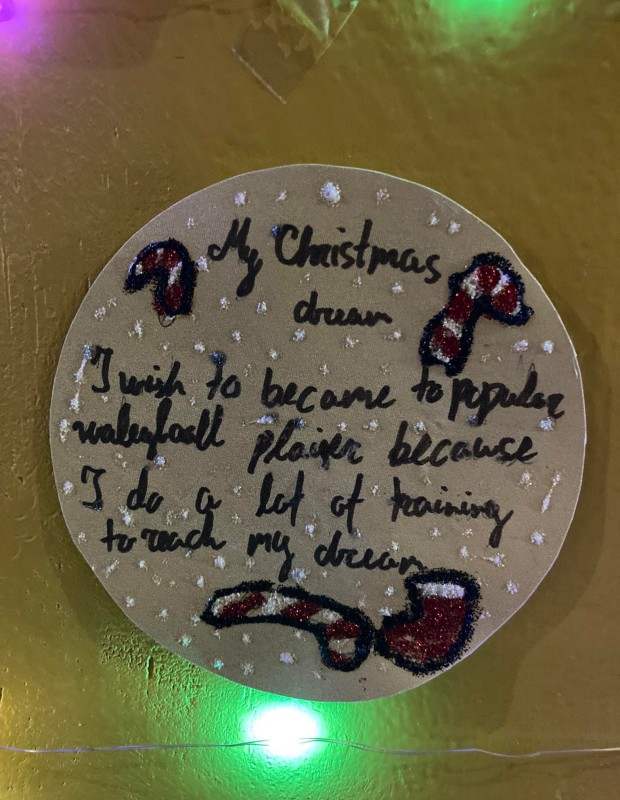 My Christmas
dream
I wish to became to popular
waleyball plaiyer because
I do a lot of training
to reach my dream